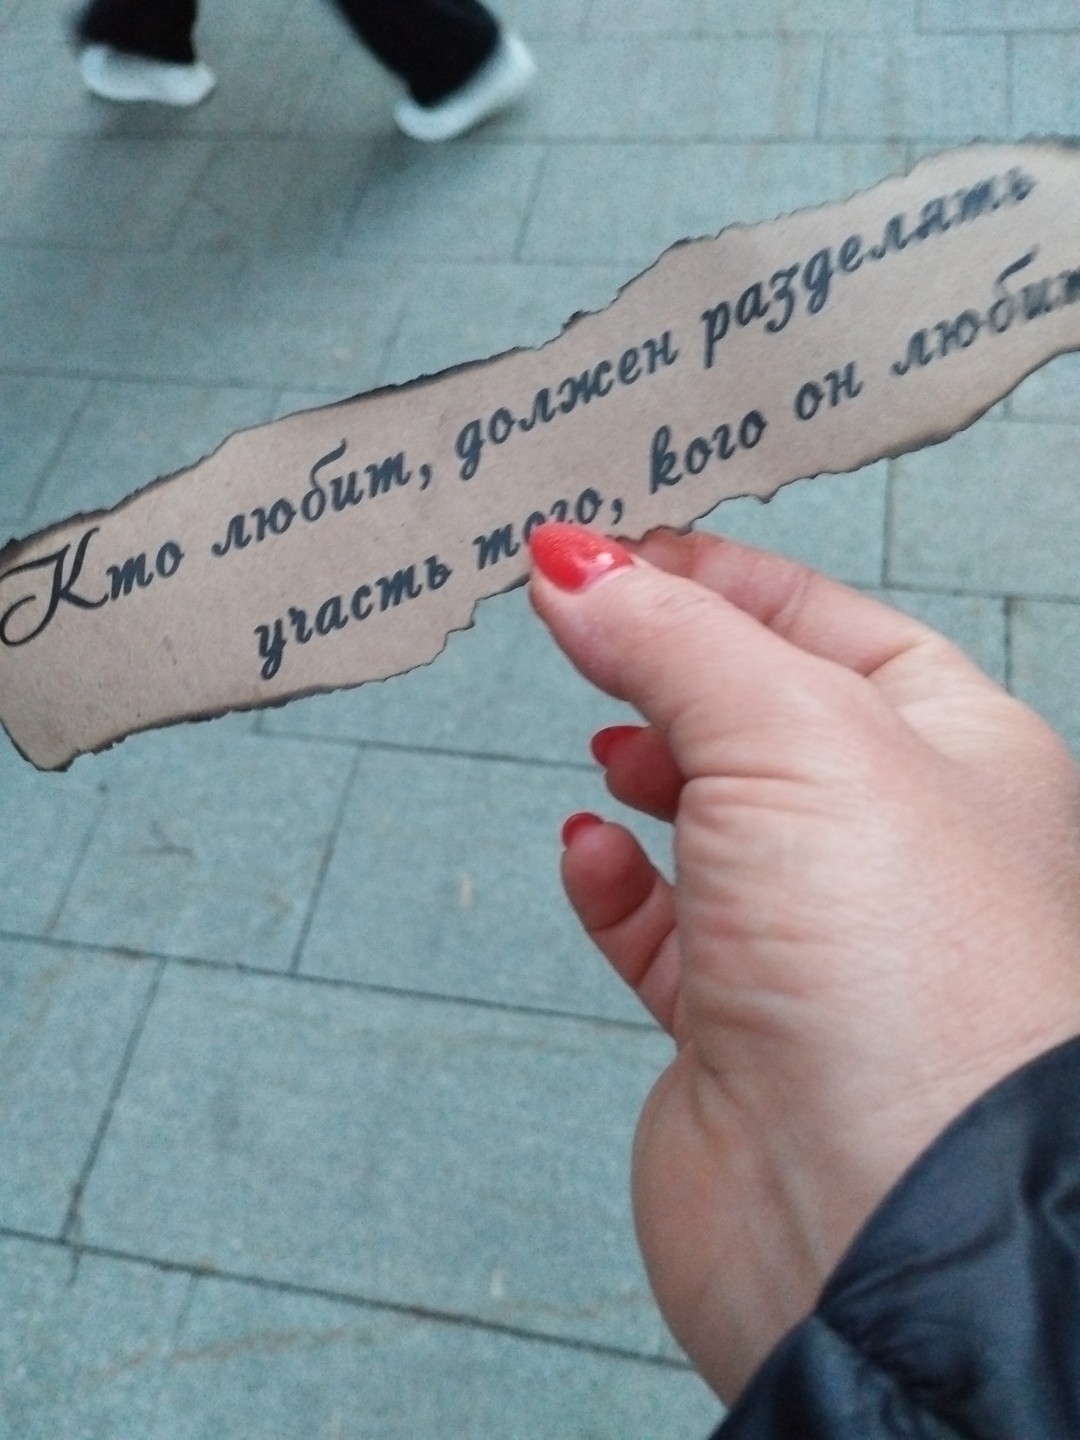 Кто любит, должен разделять
участь того, кого он любит